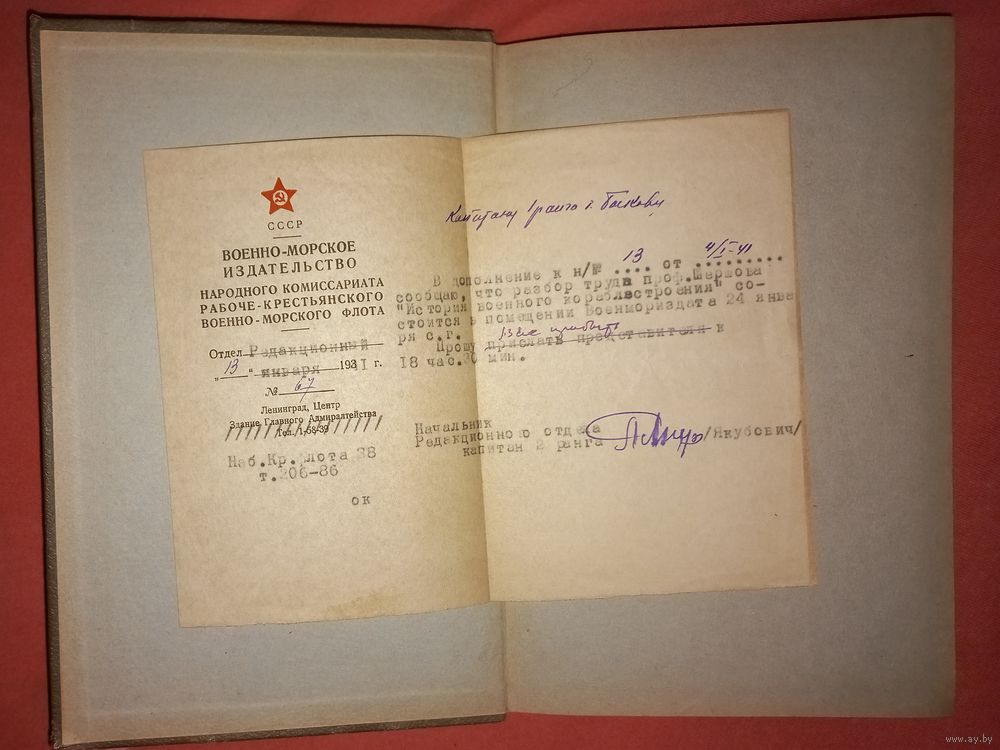 СССР
ВОЕННО-МОРСКОЕ
ИЗДАТЕЛЬСТВО
НАРОДНОГО КОМИССАРИАТА
РАБОЧЕ-КРЕСТЬЯНСКОГО
ВОЕННО-МОРСКОГО ФЛОТА
Отдел Редакционный
„13“ января 1941 г.
№ 67
Ленинград, Центр
Здание Главного Адмиралтейства
Тел. 1-68-39
Наб.Кр.Флота 38
т.206-86
ок
Капитану 1 ранга т.
В дополнение к н/№ 13 от 4/I-41
сообщаю, что разбор труда проф.Шершова
"История военного кораблестроения" со-
стоится в помещении Военмориздата 24 янва
ря с.г.
Прошу прислать представителя к
18 час.30 мин.
Начальник
Редакционного отдела
капитан 2 ранга /Якубович/
www.ay.by